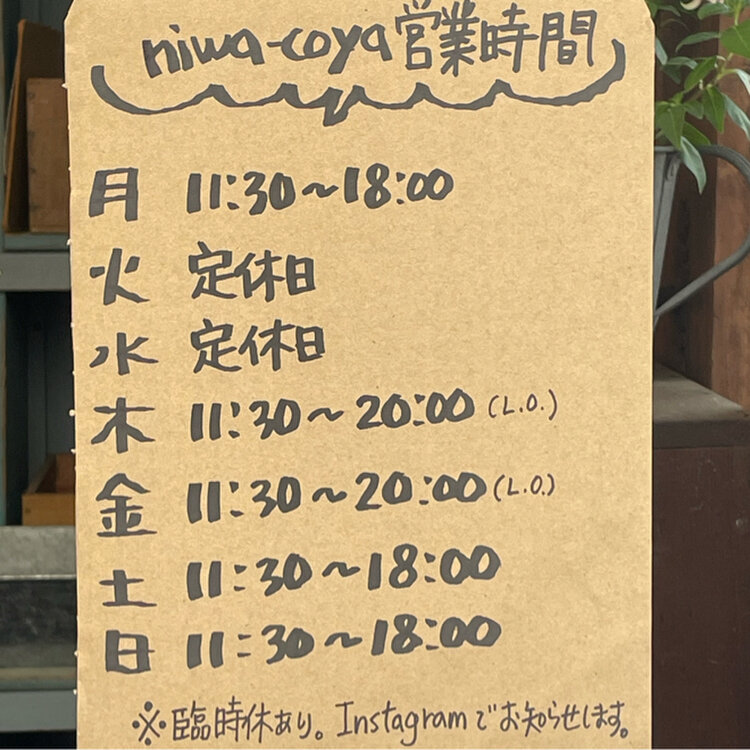 niwa-coya営業時間
月 11:30～18:00
火 定休日
水 定休日
木 11:30～20:00(L.O.)
金 11:30～20:00(L.O.)
土 11:30～18:00
日 11:30～18:00
※臨時休あり。Instagramでお知らせします。